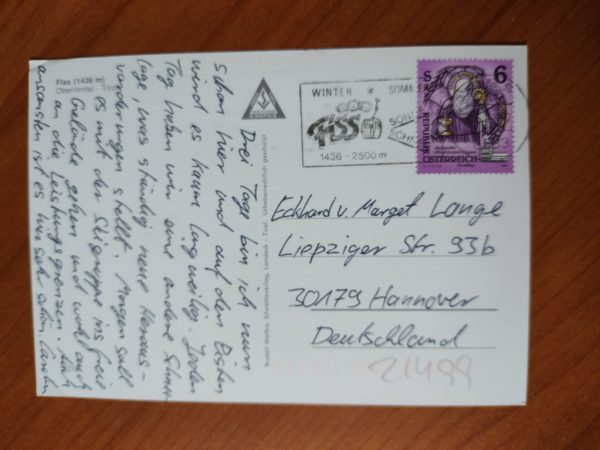 Fiss (1436 m)
Oberinntal - Tirol
Drei Tage bin ich nun
schon hier und auf den Pisten
wird es kaum langweilig. Jeden
Tag haben wir eine andere Schnee-
lage, was ständig neue Heraus-
vorderungen stellt. Morgen soll
es mit der Skigruppe ins freie
Gelände gehen und wohl auch
an die Leistungsgrenzen.
ansonsten ist es hier sehr schön.
WINTER * SOMM
Fiss
1436 - 2500 m
S 6
REPUBLIK
ÖSTERREICH
Eckhard u. Margot Lange
Liepziger Str. 93b
30179 Hannover
Deutschland
21499